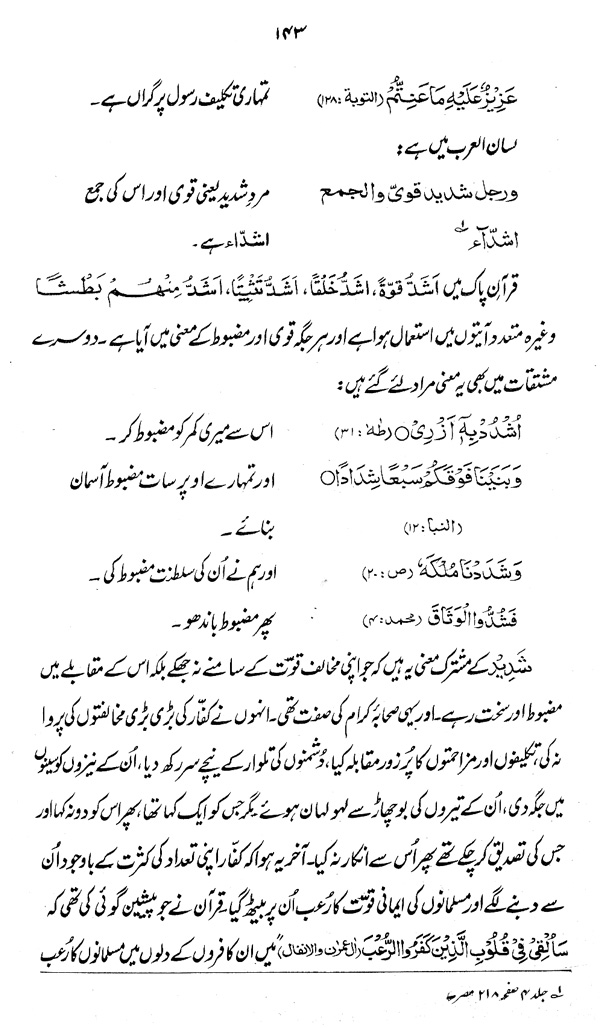 ۱۴۳
عَزِیْزٌ عَلَیْهِ مَا عَنِتُّمْ (التوبة: ۱۲۸) تمہاری تکلیف رسول پر گراں ہے۔
لسان العرب میں ہے:
ورجل شدید قویّ والجمع مردِ شدید یعنی قوی اور اس کی جمع
اشدّآء ؂۱ اشدّاء ہے۔
قرآن پاک میں اَشَدُّ قُوَّةً، اَشَدُّ خَلْقًا، اَشَدُّ تَثْبِیْتًا، اَشَدُّ مِنْهُمْ بَطْشًا
وغیرہ متعدد آیتوں میں استعمال ہوا ہے اور ہر جگہ قوی اور مضبوط کے معنی میں آیا ہے۔ دوسرے
مشتقات میں بھی یہ معنی مراد لئے گئے ہیں:
اُشْدُدْ بِهٖۤ اَزْرِیْ○ (طٰہٰ: ۳۱) اس سے میری کمر کو مضبوط کر۔
وَبَنَیْنَا فَوْقَكُمْ سَبْعًا شِدَادًا○ اور تمہارے اوپر سات مضبوط آسمان
(النبا: ۱۲) بنائے۔
وَشَدَدْنَا مُلْكَهٗ (ص: ۲۰) اور ہم نے اُن کی سلطنت مضبوط کی۔
فَشُدُّوا الْوَثَاقَ (محمد: ۴) پھر مضبوط باندھو۔
شَدِیْد کے مشترک معنی یہ ہیں کہ جو اپنی مخالف قوت کے سامنے نہ جھکے بلکہ اس کے مقابلے میں
مضبوط اور سخت رہے۔ اور یہی صحابۂ کرام کی صفت تھی۔ انہوں نے کفّار کی بڑی بڑی مخالفتوں کی پروا
نہ کی، تکلیفوں اور مزاحمتوں کا پُر زور مقابلہ کیا، دُشمنوں کی تلوار کے نیچے سر رکھ دیا، اُن کے نیزوں کو سینوں
میں جگہ دی، اُن کے تیروں کی بوچھاڑ سے لہو لہان ہوئے مگر جس کو ایک کہا تھا، پھر اس کو دو نہ کہا اور
جس کی تصدیق کر چکے تھے پھر اُس سے انکار نہ کیا۔ آخر یہ ہوا کہ کفّار اپنی تعداد کی کثرت کے باوجود اُن
سے دبنے لگے اور مسلمانوں کی ایمانی قوت کا رُعب اُن پر بیٹھ گیا۔ قرآن نے جو پیشین گوئی کی تھی کہ
سَاُلْقِیْ فِیْ قُلُوْبِ الَّذِیْنَ كَفَرُوا الرُّعْبَ (اٰل عمرٰن والانفال) "میں ان کافروں کے دلوں میں مسلمانوں کا رُعب
؂۱ جلد ۴ صفحہ ۲۱۸ مصر